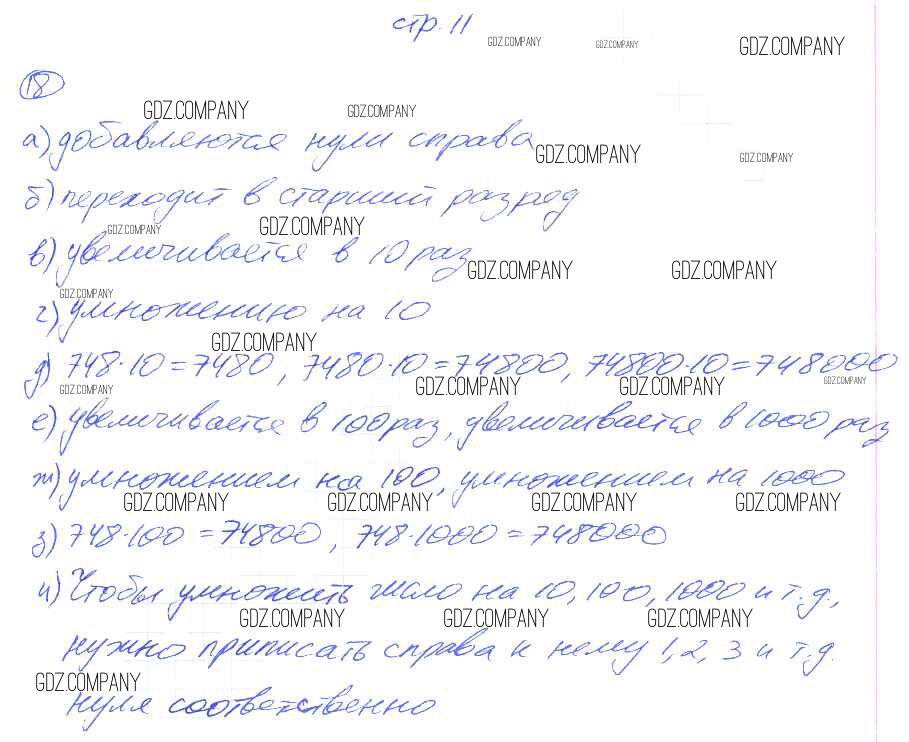 стр. 11
GDZ.COMPANY GDZ.COMPANY GDZ.COMPANY
18
GDZ.COMPANY GDZ.COMPANY
а) добавляются нули справа
GDZ.COMPANY GDZ.COMPANY
б) переходит в старший разряд
GDZ.COMPANY GDZ.COMPANY
в) увеличивается в 10 раз
GDZ.COMPANY GDZ.COMPANY
GDZ.COMPANY
г) умножению на 10
GDZ.COMPANY
д) 748·10=7480, 7480·10=74800, 74800·10=748000
GDZ.COMPANY GDZ.COMPANY GDZ.COMPANY GDZ.COMPANY
е) увеличивается в 100 раз, увеличивается в 1000 раз
ж) умножением на 100, умножением на 1000
GDZ.COMPANY GDZ.COMPANY GDZ.COMPANY GDZ.COMPANY
з) 748·100=74800, 748·1000=748000
и) Чтобы умножить число на 10, 100, 1000 и т.д.,
GDZ.COMPANY GDZ.COMPANY GDZ.COMPANY
нужно приписать справа к нему 1, 2, 3 и т.д.
GDZ.COMPANY
нуля соответственно